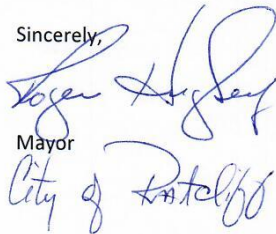 Sincerely,
Roger
Mayor
City of Ratcliff